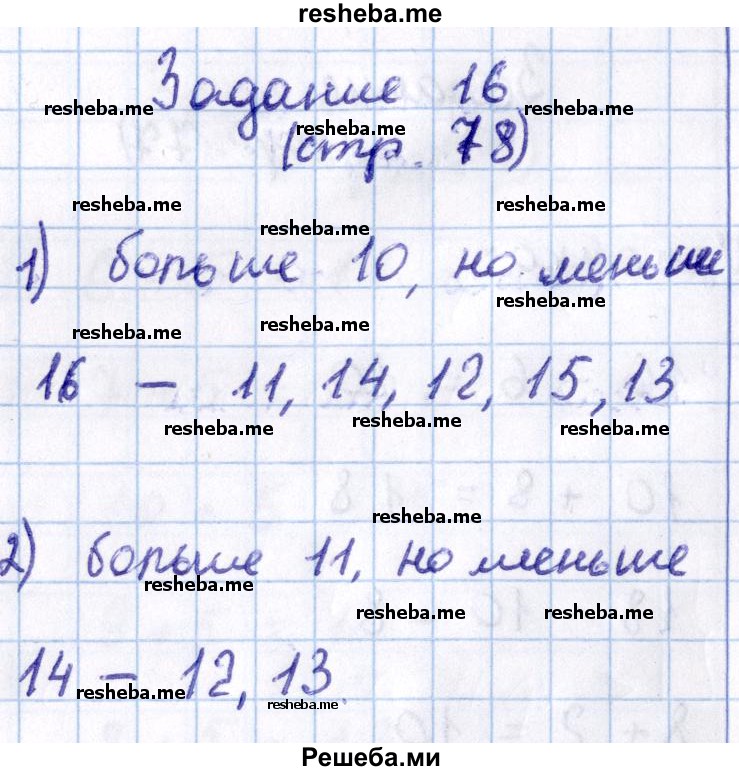 resheba.me
Задание 16
resheba.me
resheba.me
(стр. 78)
resheba.me
resheba.me
resheba.me
1) больше 10, но меньше
resheba.me
resheba.me
resheba.me
16 – 11, 14, 12, 15, 13
resheba.me
resheba.me
resheba.me
resheba.me
2) больше 11, но меньше
resheba.me
resheba.me
resheba.me
14 – 12, 13.
resheba.me
resheba.me
Решеба.ми